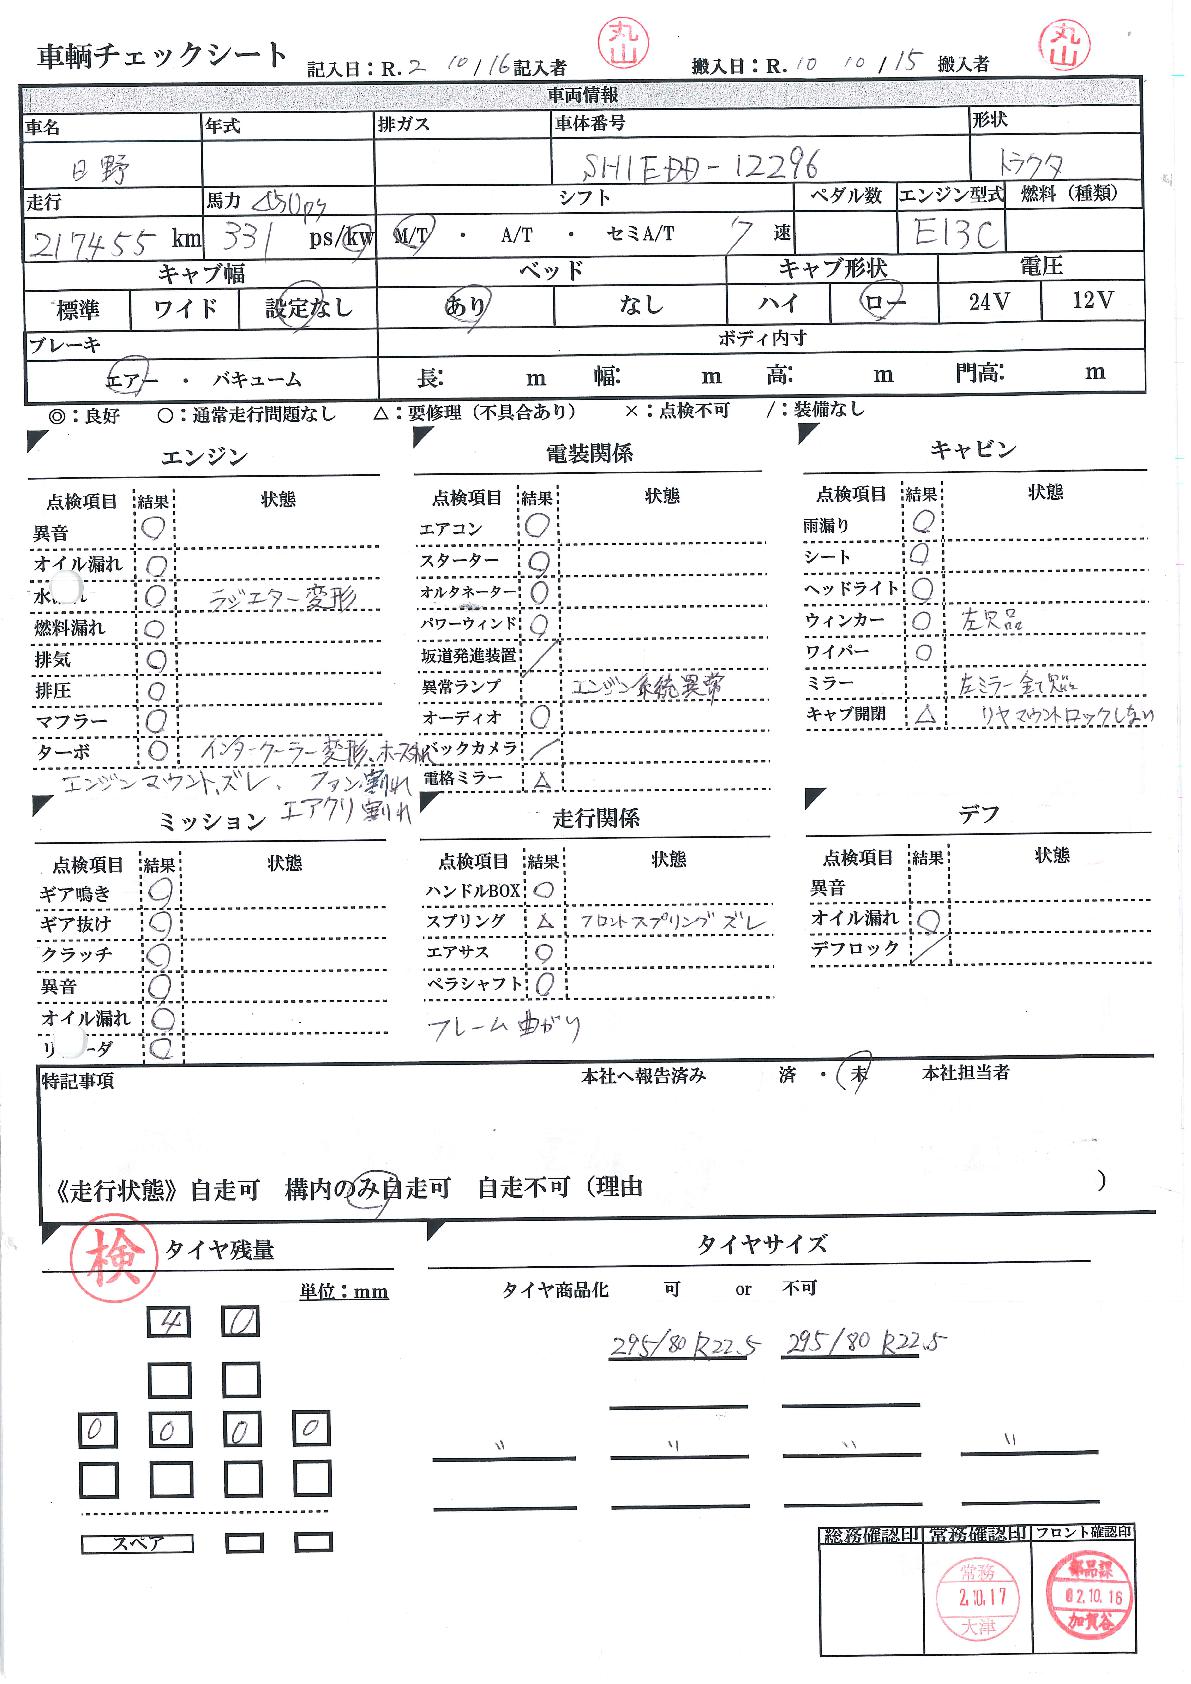 車輌チェックシート 記入日：R.2 10/16 記入者 丸山 搬入日：R.10 10/15 搬入者 丸山
車両情報
車名 年式 排ガス 車体番号 形状
日野 SH1EDD-12296 トラクタ
走行 馬力 450ps シフト ペダル数 エンジン型式 燃料（種類）
217455 km 331 ps/kw M/T ・ A/T ・ セミA/T 7 速 E13C
キャブ幅 ベッド キャブ形状 電圧
標準 ワイド 設定なし あり なし ハイ ロー 24V 12V
ブレーキ ボディ内寸
エアー ・ バキューム 長: m 幅: m 高: m 門高: m
◎：良好 ○：通常走行問題なし △：要修理（不具合あり） ×：点検不可 /：装備なし
エンジン
点検項目 結果 状態
異音 ○
オイル漏れ ○
水 れ ○ ラジエター変形
燃料漏れ ○
排気 ○
排圧 ○
マフラー ○
ターボ ○ インタークーラー変形、ホース切れ
エンジンマウントズレ、ファン割れ
エアクリ割れ
電装関係
点検項目 結果 状態
エアコン ○
スターター ○
オルタネーター ○
パワーウィンド ○
坂道発進装置 /
異常ランプ エンジン系統異常
オーディオ ○
バックカメラ /
電格ミラー △
キャビン
点検項目 結果 状態
雨漏り ○
シート ○
ヘッドライト ○
ウィンカー ○ 左欠品
ワイパー ○
ミラー 左ミラー全て欠品
キャブ開閉 △ リヤマウントロックしない
ミッション
点検項目 結果 状態
ギア鳴き ○
ギア抜け ○
クラッチ ○
異音 ○
オイル漏れ ○
リ ーダ ○
走行関係
点検項目 結果 状態
ハンドルBOX ○
スプリング △ フロントスプリングズレ
エアサス ○
ペラシャフト ○
フレーム曲がり
デフ
点検項目 結果 状態
異音
オイル漏れ ○
デフロック /
特記事項 本社へ報告済み 済 ・ 未 本社担当者
《走行状態》自走可 構内のみ自走可 自走不可（理由 ）
検 タイヤ残量
単位：mm
4 0
0 0 0 0
スペア
タイヤサイズ
タイヤ商品化 可 or 不可
295/80 R22.5 295/80 R22.5
〃 〃 〃 〃
総務確認印 常務確認印 フロント確認印
常務 2.10.17 大津
部品課 02.10.16 加賀谷